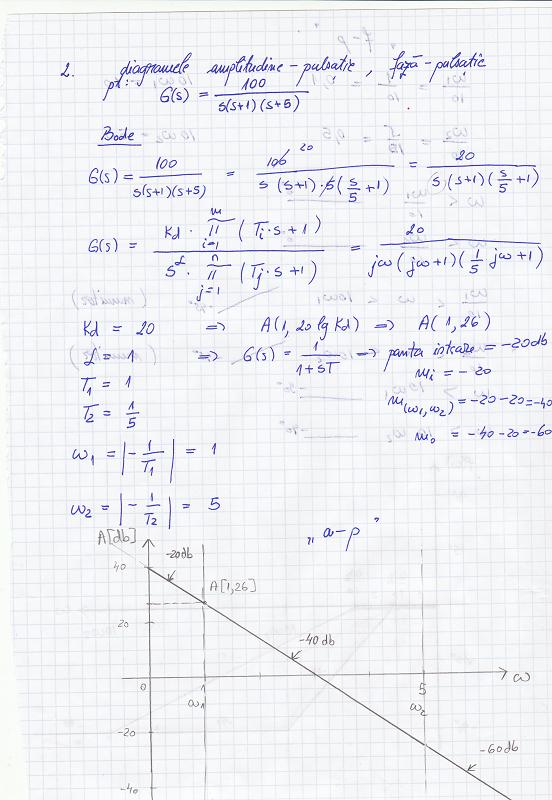 2. diagramele amplitudine-pulsatie, fază-pulsatie
pt: G(s) = 100 / s(s+1)(s+5)
Bode
G(s) = 100 / s(s+1)(s+5) = 100 20 / s(s+1)·5(s/5+1) = 20 / s(s+1)(s/5+1)
G(s) = Kd · m ∏ i=1 (Ti·s+1) / s^α · n ∏ j=1 (Tj·s+1) = 20 / jω(jω+1)(1/5 jω+1)
Kd = 20 => A(1, 20 lg Kd) => A(1,26)
α = 1 => G(s) = 1 / 1+sT => panta intrare = -20db
T1 = 1 mi = -20
T2 = 1/5 m(ω1,ω2) = -20-20=-40
ω1 = |-1/T1| = 1 mo = -40-20=-60
ω2 = |-1/T2| = 5
„a-p”
A[db]
-20db
40
A[1,26]
20
-40db
0 1 5 ω
ω1 ω2
-20
-60db
-40